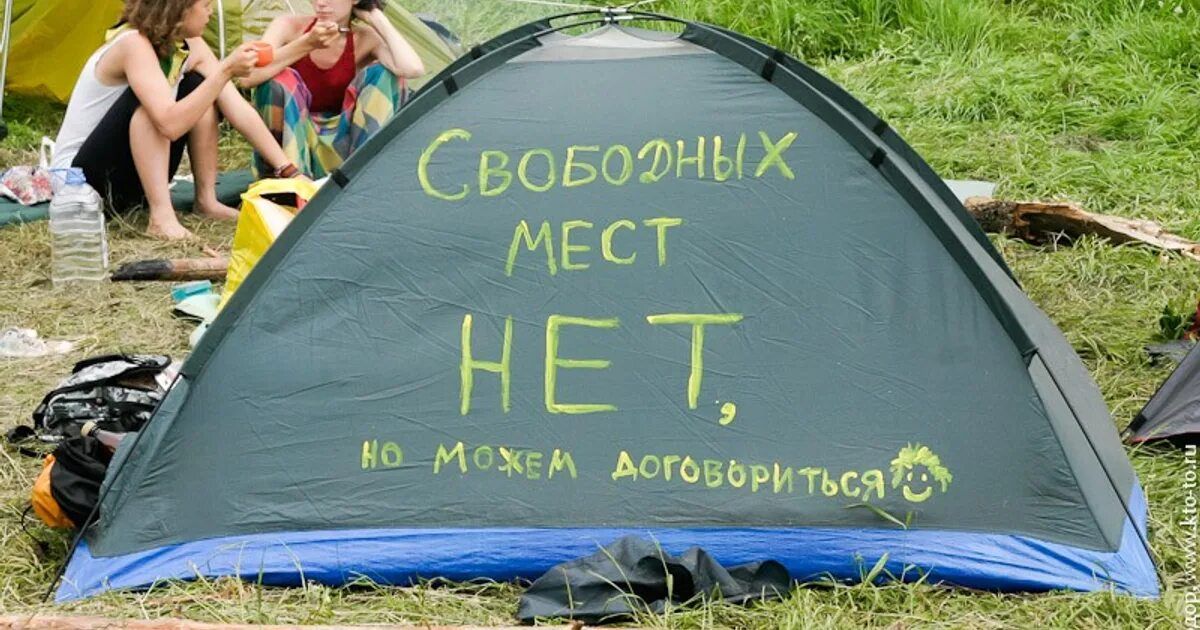 Свободных
мест
НЕТ,
но можем договориться
gop.www.kto-to.ru